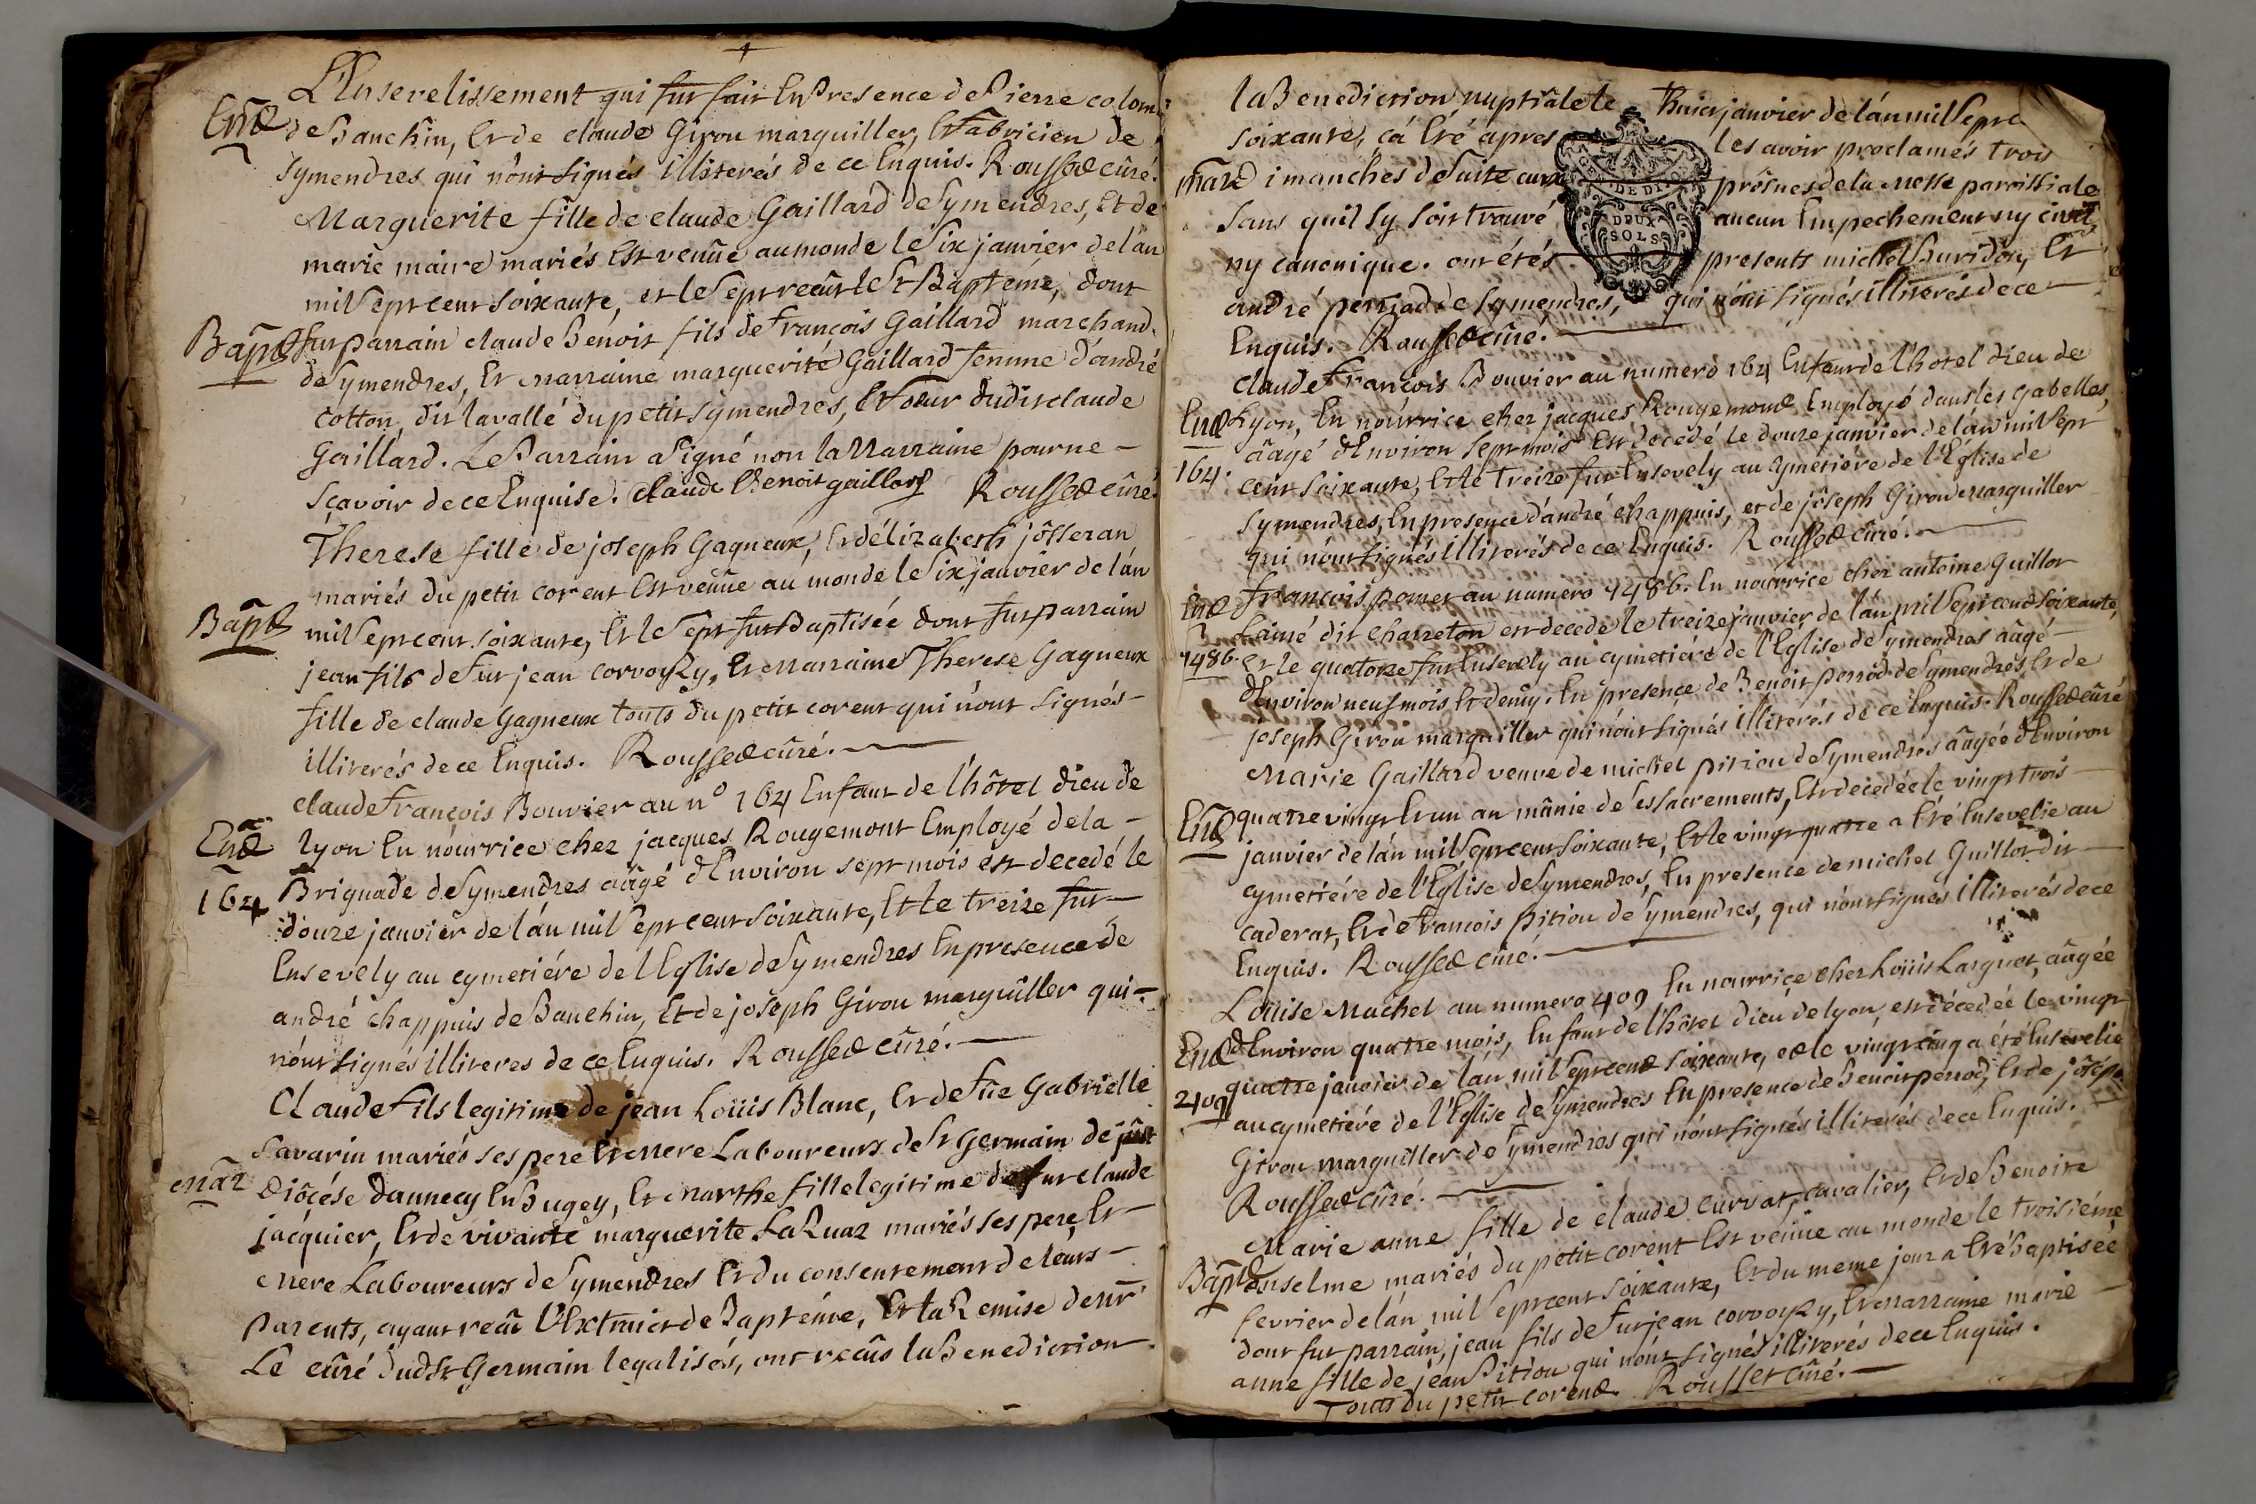 L'Ensevelissement qui fut fait En Presence de Pierre colom
Ent de Banchin, Et de claude Girou marguiller, Et fabricien de
Symendres qui n'ont signés Illiterés de ce Enquis. Rousset curé.
Marguerite fille de claude Gaillard de Symendres, Et de
marie maire mariés Est venüe au monde le Six janvier de l'an
mil Sept cent Soixante, et le Sept reçut le St Baptême, dont
Bapt fut parrain claude Benoit fils de françois Gaillard marchand
de Symendres, Et marraine marguerite Gaillard femme d'andré
cotton, dit lavallé du petit Symendres, Et soeur dudit claude
Gaillard. Le Parrain a Signé non la Marraine pour ne
sçavoir de ce Enquise. claude Benoit gaillard Rousset curé.
Therese fille de joseph Gagneux, Et d'élizabeth jósseran
mariés du petit corent Est venüe au monde le Six janvier de l'an
Bapt mil Sept cent soixante, Et le Sept fut Baptisée dont fut parrain
jean fils de Fut jean corvoyzy, Et marraine Therese Gagneux
fille de claude Gagneux touts du petit corent qui n'ont signés
illiterés de ce Enquis. Rousset curé.
claude François Bouvier au n° 164 Enfant de l'hôtel dieu de
Ent Lyon En nourrice chez jacques Rougemont Employé de la
164 Briguade de Symendres aagé d'Environ sept mois est decedé le
douze janvier de l'an mil Sept cent Soixante, Et le treize fut
Ensevely au cymetiére de l'Eglise de Symendres En presence de
andré chappuis de Banchin, Et de joseph Girou marguiller qui
n'ont signés illiteres de ce Enquis. Rousset curé.
Claude Fils legitime de jean Loüis Blanc, Et de Füe Gabrielle
Savarin mariés ses pere Et mere Laboureurs de St Germain de
mar diôcése d'annecy En Bugey, Et marthe fille legitime de fut claude
jacquier, Et de vivante marguerite LaRuaz mariés ses pere Et
mere Laboureurs de Symendres Et du consentement de leurs
Parents, ayant reçu l'Extrait de Baptême, Et la Remise de mr
Le curé dudt St Germain legalisés, ont reçus la Benediction
la Benediction nuptiale le huict janvier de l'an mil Sept
Soixante, ça Eté apres les avoir proclamés trois
mar dimanches de suite aux prônes de la Messe paroissiale
Sans quil Sy soit trouvé aucun Empechement ny civil
ny canonique. ont étés presents michel Buridon, Et
andré perrod de Symendres, qui n'ont signés illiterés de ce
Enquis. Rousset curé.
DEUX
SOLS
claude François Bouvier au numero 164 Enfant de l'hotel dieu de
Ent Lyon, En nourrice chez jacques Rougemont Employé dans les Gabelles,
âagé d'Environ sept mois Est decedé le douze janvier de l'an mil Sept
164. cent Soixante, Et le treize fut Ensevely au cymetiére de l'Église de
Symendres, En presence d'andré chappuis, et de jôseph Girou Marguiller
qui n'ont signés illiterés de ce Enquis. Rousset curé.
Ent François pomet au numero 1486. En nourrice chez antoine Guillot
L'ainé dit charreton est decedé le treize janvier de l'an mil Sept cent Soixante,
1486. Et le quatorze fut Ensevely au cymetiére de l'Eglise de Symendres âagé
d'Environ neuf mois Et demy. En presence de Benoit perrod de Symendres, Et de
joseph Girou marguiller qui n'ont signés illiterés de ce Enquis. Rousset curé
Marie Gaillard veuve de michel pitiou de Symendres âagée d'Environ
Ent quatre vingt Et un an mûnie de ses sacrements, Est decedée le vingt trois
janvier de l'an mil Sept cent Soixante, Et le vingt quatre a Eté Ensevelie au
cymetiére de l'Église de Symendres, En presence de michel Guillot dit
caderat, Et de François pitiou de Symendres, qui n'ont signés illiterés de ce
Enquis. Rousset curé.
Loüise Machet au numero 409 En nourrice chez Loüis Larguet, aâgée
Ent d'Environ quatre mois, Enfant de l'hôtel dieu de lyon, est décedée le vingt
409 quatre janvier de l'an mil Sept cent Soixante, et le vingt cinq a été Ensevelie
au cymetiére de l'Église de Symendres En presence de Benoit perrod, Et de jôseph
Girou marguiller de Symendres qui n'ont signés illiterés de ce Enquis.
Rousset curé.
Marie anne fille de claude curvat, cavalier, Et de Benoite
Bapt anselme mariés du petit corent Est venüe au monde le troisiéme
fevrier de l'an mil Sept cent Soixante, Et du meme jour a Eté Baptisée
dont fut parrain, jean fils de Fut jean corvoyzy, Et marraine marie
anne fille de jean Pitiou qui n'ont signés illiterés de ce Enquis.
Touts du petit corent. Rousset curé.